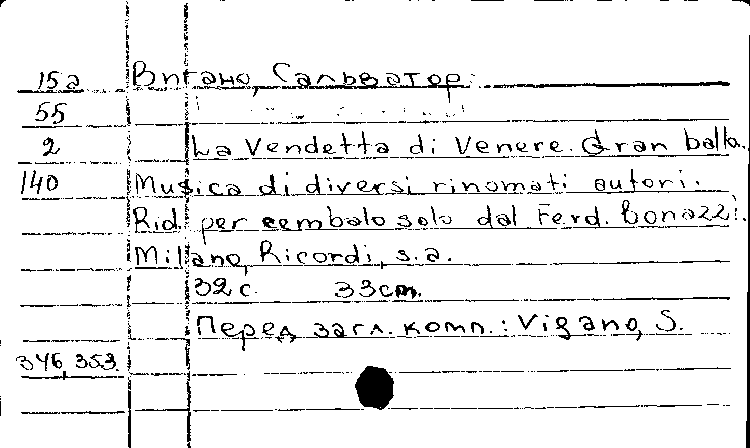 15а Вигано, Сальватор.
55
2 La Vendetta di Venere. Gran ballo.
140 Musica di diversi rinomati autori.
Rid. per cembalo solo dal Ferd. Bonazzi.
Milano, Ricordi, s.a.
32 c. 33 cm.
Перед загл. комп.: Vigano, S.
346,353.